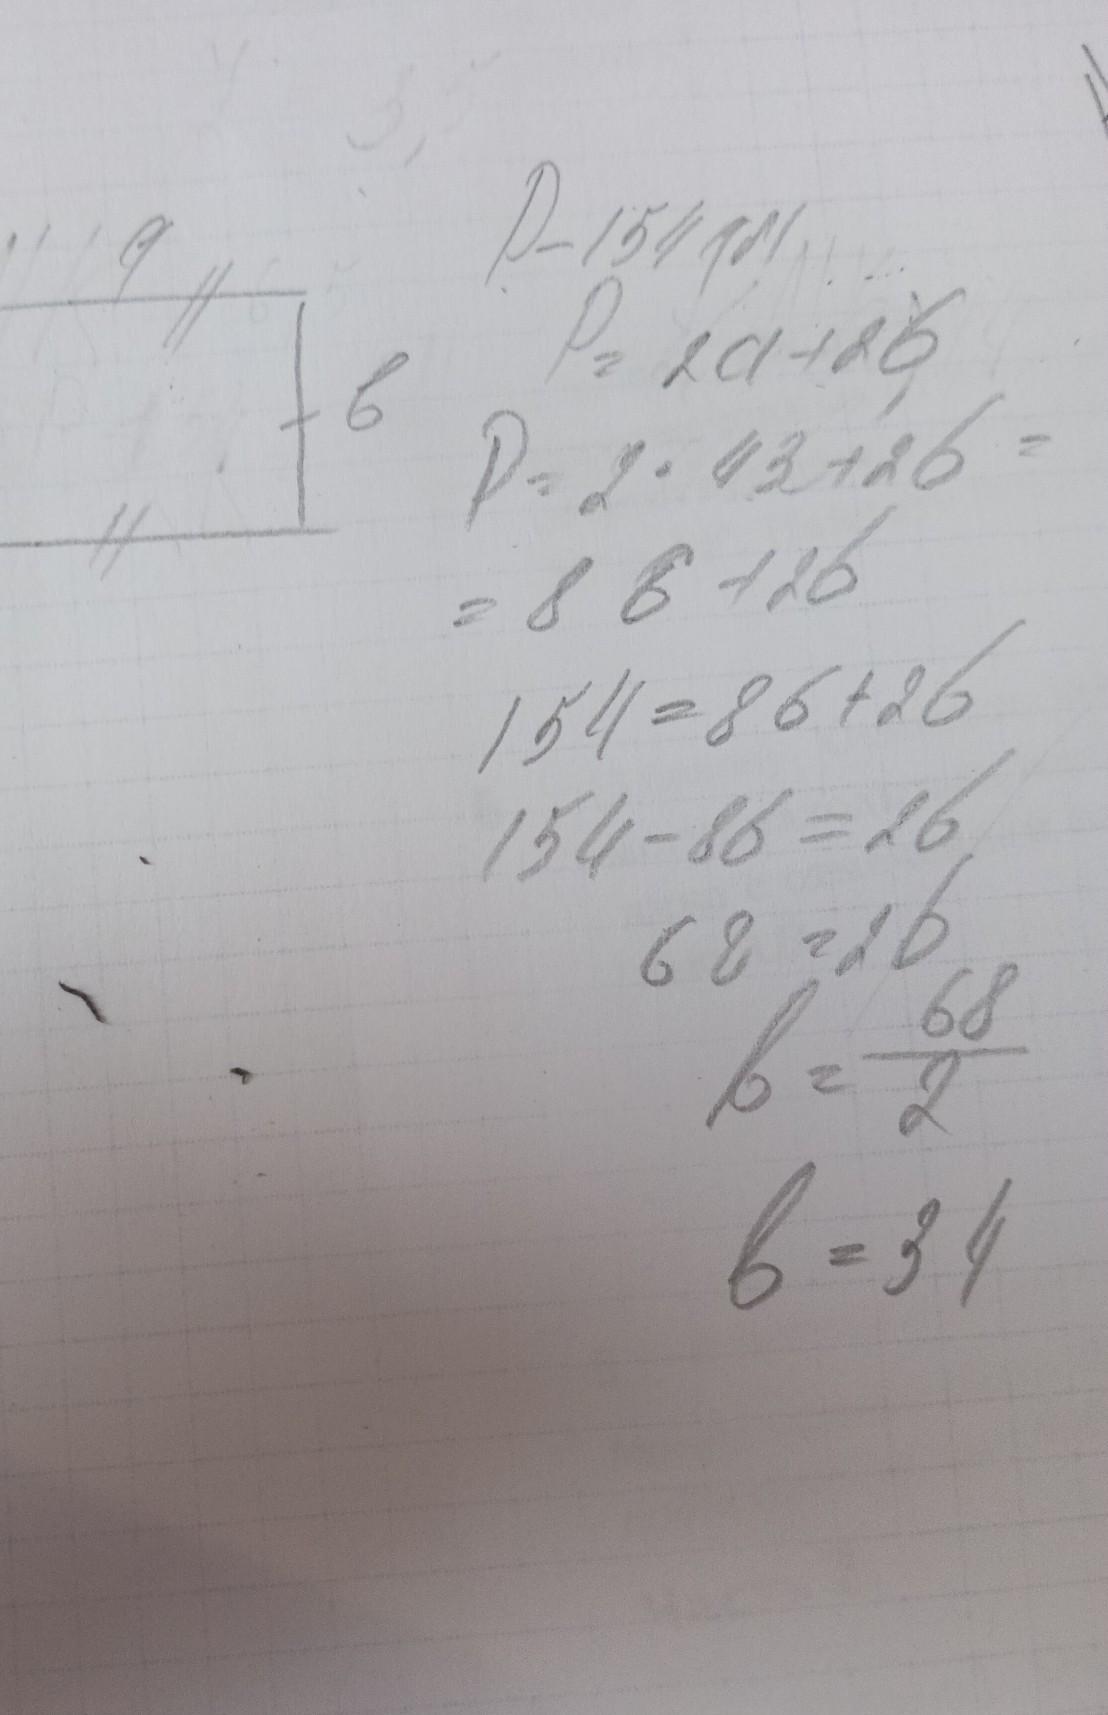 a
b
P - 154 дм
P = 2a + 2b
P = 2 · 43 + 2b =
= 86 + 2b
154 = 86 + 2b
154 - 86 = 2b
68 = 2b
b = 68/2
b = 34